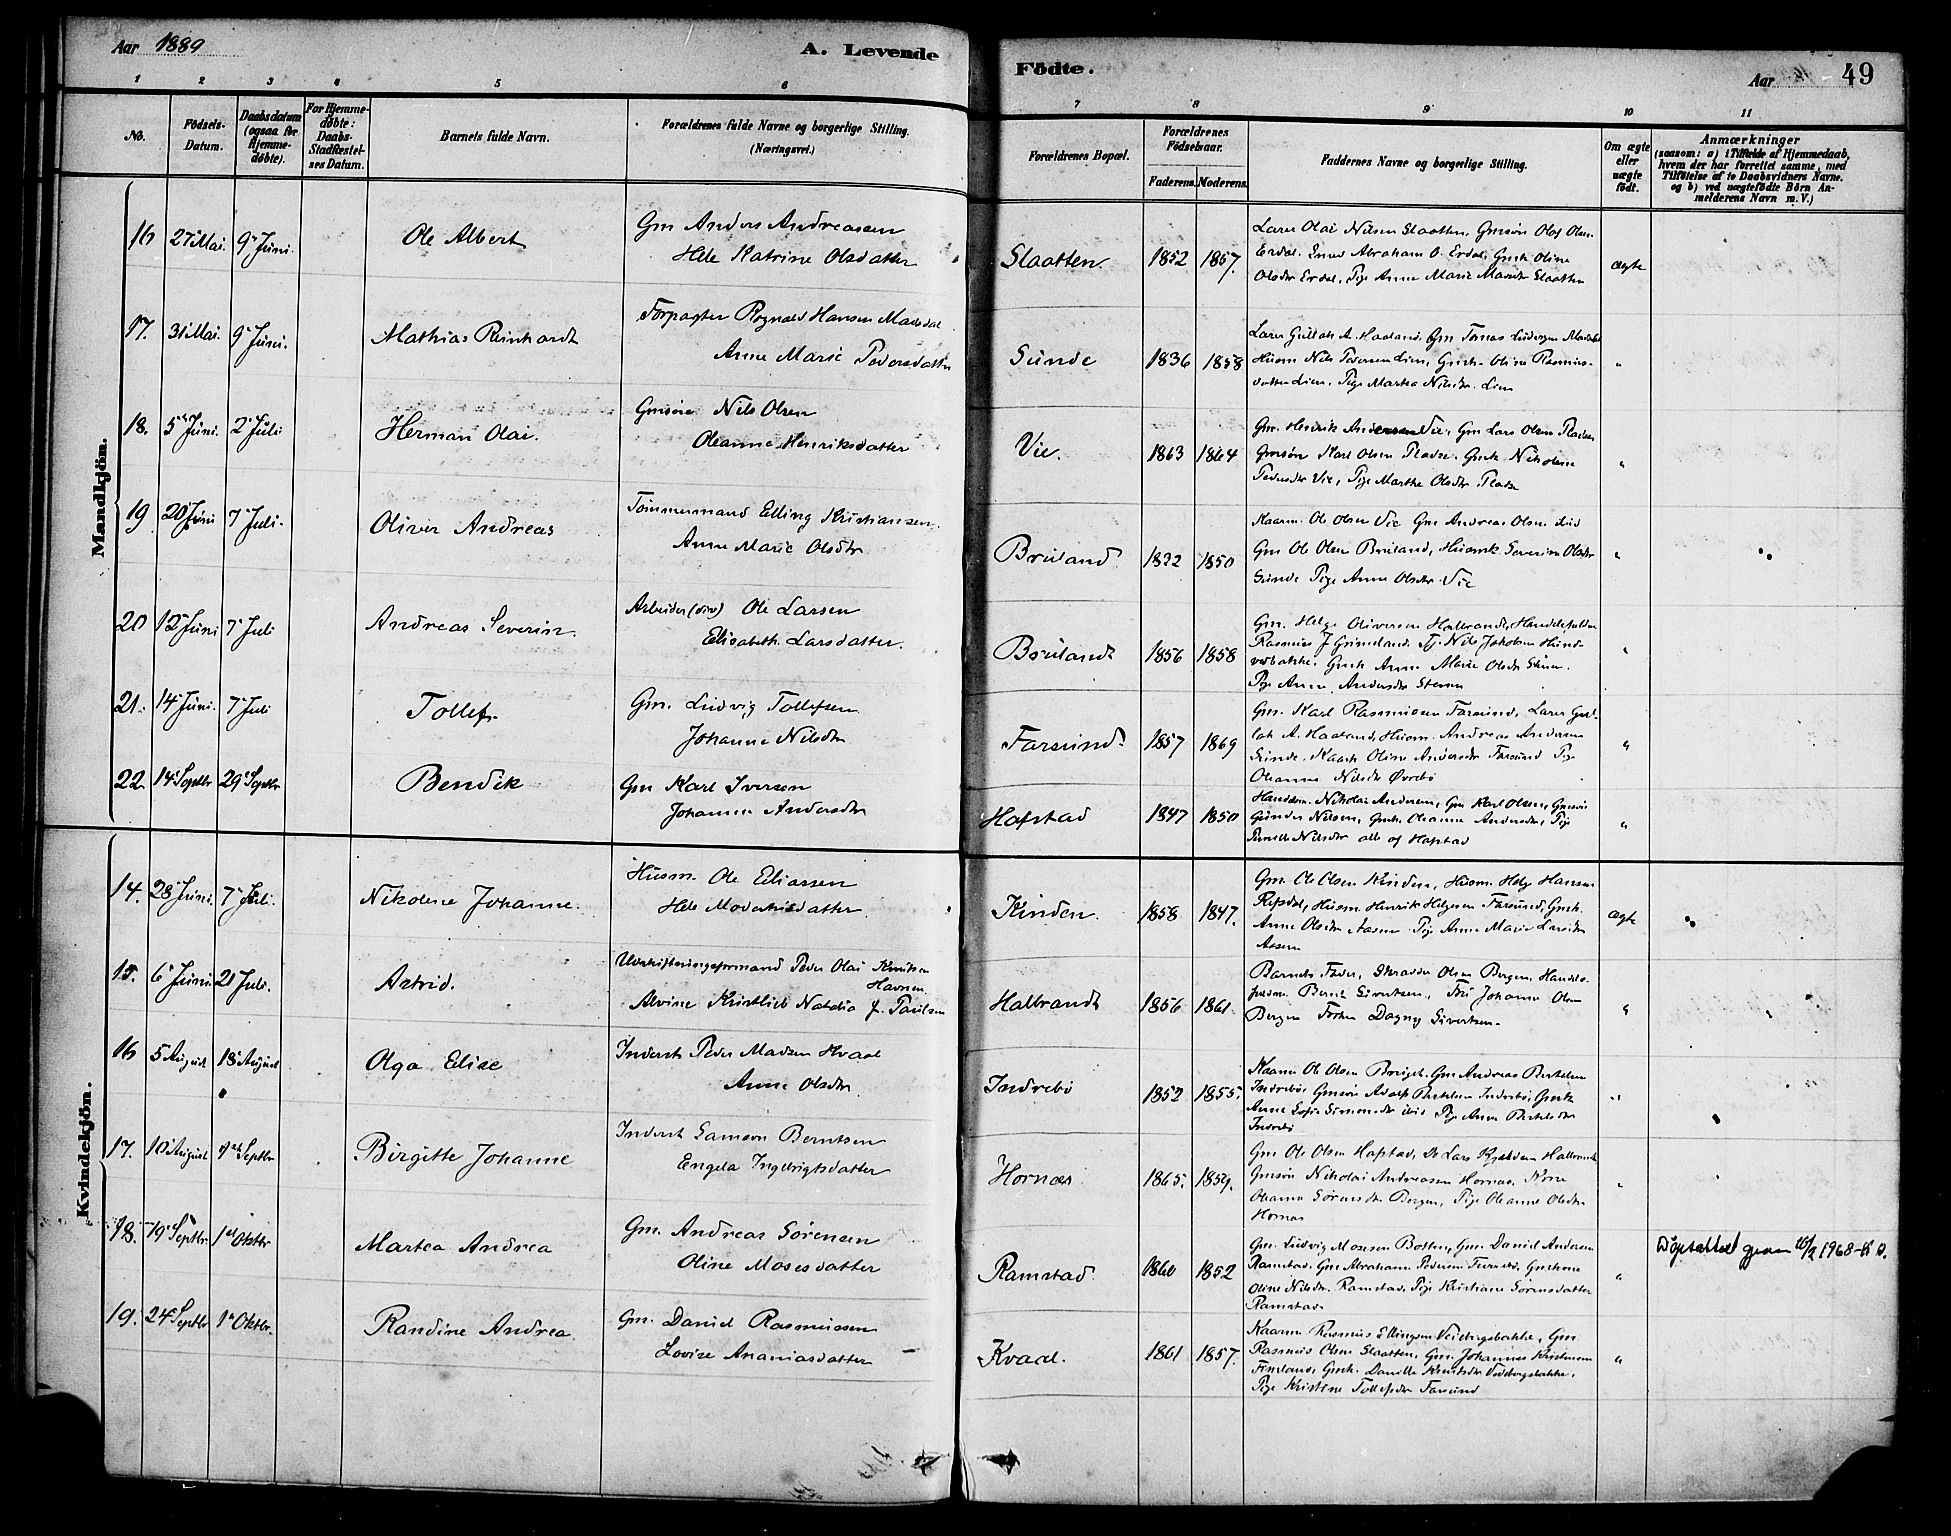 Aar 1889
A. Levende
Födte.
Aar
49
1 2 3 4 5 6 7 8 9 10 11
No.
Födsels-
Datum.
Daabsdatum
(ogsaa for
Hjemme-
döbte).
For Hjemme-
döbte:
Daabs-
Stadfæstel-
ses Datum.
Barnets fulde Navn.
Forældrenes fulde Navne og borgerlige Stilling.
(Næringsvei.)
Forældrenes Bopæl.
Forældrenes
Födselsaar.
Faderens. Moderens.
Faddernes Navne og borgerlige Stilling.
Om ægte
eller
uægte
födt.
Anmærkninger
(saasom: a) i Tilfælde af Hjemmedaab,
hvem der har forrettet samme, med
Tilföielse af to Daabsvidners Navne.
og b) ved uægtefödte Börn An-
melderens Navn m. V.)
Mandkjön.
16 27 Mai. 9 Juni. Ole Albert
Gm Anders Andreasen
Hele Katrine Olsdatter
Slaatten 1852 1857.
Lærer Olai Nilsen Slaatten, Gmsøn Olaf Olsen
Erdal, Abraham O. Erdal, Gmk Oline
Olsdtr Erdal, Pige Anne Marie Slaatten
ægte
17. 31 Mai. 9 Juni. Mathias Reinhardt
Forpagter Rognald Hansen
Anne Marie Pedersdatter
Sunde 1836 1858
Lærer Gullak A. Haaland, Gm Tomas Ludvigsen
Husm Nils Pedersen Lien, Gmk. Oline Rasmus-
datter Lien, Pige Martha Nilsdtr. Lien
"
18. 5 Juni. 2 Juli Herman Olai.
Gmsøn Nils Olsen
Oleanne Henriksdatter
Vie. 1863 1864
Gm. Henrik Andersen Vie, Gm Lars Olsen
Gmsøn Karl Olsen Gmk Nikoline
Pedersdtr Vie, Pige Marthe Olsdtr
"
19 20 Juni 7 Juli. Oliver Andreas
Tømmermand Elling Kristiansen.
Anne Marie Olsdtr
Bruland 1822 1850
Kaarm. Ole Olsen Vie Gm Andreas Olsen
Gm Ole Olsen Bruland, Husmk Severine Olsdtr
Sunde Pige Anne Olsdtr Vie
"
20 12 Juni 7 Juli Andreas Severin.
Arbeider Ole Larsen
Elisabeth Larsdatter.
Bruland 1856 1858
Gm. Helge Oliversen Halbrandt, Handelsfuldm
Rasmus J Grimeland. Nils Jakobsen Hund-
vebakke. Gmk Anne Marie Olsdtr
Pige Anne Andersdtr Steen
"
21. 14 Juni. 7 Juli Tollef.
Gm. Ludvig Tollefsen
Johanne Nilsdtr
Farsund. 1857 1869
Gm. Karl Rasmussen Farsund, Lærer Gul-
lak A. Haaland, Husm. Andreas Andersen
Sunde, Kaark Oline Andersdtr Farsund Pige
Oleanne Nilsdtr Øvrebø
"
22. 14 Septbr 29 Septbr. Bendik
Gm Karl Iversen
Johanne Andersdtr
Hafstad 1847 1850
Nikolai Andersen, Gm Karl Olsen, Gmsøn
Gunder Nilsen, Gmk. Oleanne Andersdtr, Pige
Nilsdtr alle af Hafstad
"
Kvindekjön.
14. 28 Juni. 7 Juli. Nikoline Johanne.
Husm. Ole Eliassen
Hele
Kinden. 1858 1847.
Gm. Ole Olsen Kinden, Husm. Helge Hansen
Ripedal, Husm Henrik Helgesen Farsund, Gmk.
Anne Olsdtr Aasen Pige Anne Marie Larsdtr
Aasen
ægte
15. 6 Juni. 21 Juli. Astrid.
Peder Olai Knutsen
Havnen.
Alvine Kristlieb Natalia f. Paulsen
Halbrandt 1856 1861.
Barnets Fader, Skrædder Olsen Bergen, Handels-
Bernt Sivertsen, Fru Johanne Olsen
Bergen Frøken Dagny Sivertsen.
"
16 5 August 18 August Olga Elise
Inderst Peder Madsen Kvaal
Anne Olsdtr
Indrebø 1852 1855.
Kaarm Ole Olsen Gm Andreas Bertelsen
Indrebø, Gmsøn Adolf Bertelsen Indrebø, Gmk
Anne Sofie Simonsdtr ibid Pige Anne Bertelsdtr
Indrebø
"
17. 10 August 1 Septbr Birgitte Johanne
Inderst Samson Berntsen
Engela Ingebrigtsdatter
Hornæs 1865. 1859.
Gm Ole Olsen Hafstad, Lars Halbrandt
Gmsøn Nikolai Andreasen Hornæs, Kone
Oleanna Sørensdtr Bergen, Pige Oleanne Olsdtr
Hornæs
"
18. 19 Septbr. 1 Oktbr Martea Andrea
Gm. Andreas Sørensen
Oline Mosesdatter
Ramstad. 1860 1852
Gm. Ludvig Mosesen Botten, Gm. Daniel Andersen
Ramstad, Gm Abraham Pedersen Gmkone
Oline Nilsdtr. Ramstad, Pige Kristiane Sørensdatter
Ramstad.
"
Døpsattest 1968
19. 24 Septbr 1 Oktbr. Randine Andrea
Gm. Daniel Rasmussen
Lovise Ananiasdatter
Kvaal. 1861 1857.
Kaarm Rasmus Ellingsen Vedvigsbakke, Gm
Rasmus Olsen Slaatten, Gm. Johannes Kristensen
Fineland, Gmk. Danielle Knutsdtr Vedvigsbakke,
Pige Kristine Tollefsdtr Farsund
"